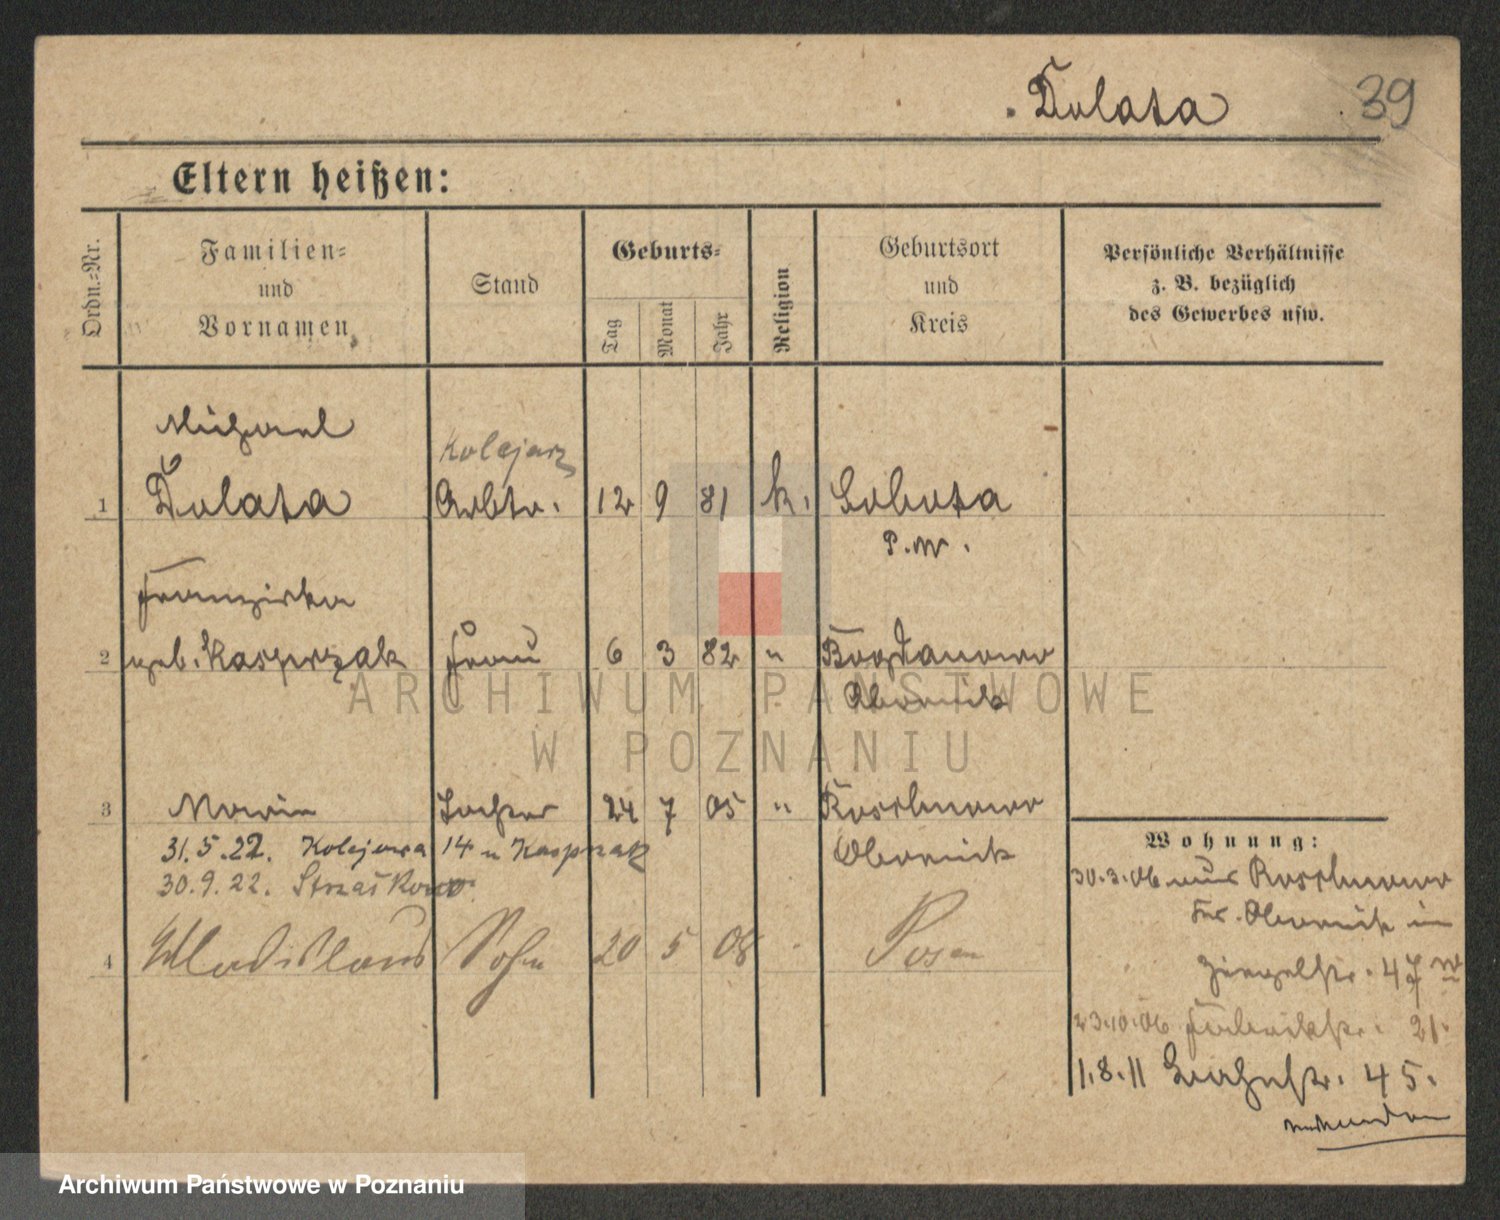 Dolata 39
Eltern heißen:
Ordn.-Nr.
Familien- und Vornamen
Stand
Geburts-
Tag
Monat
Jahr
Religion
Geburtsort und Kreis
Persönliche Verhältnisse
z. B. bezüglich
des Gewerbes usw.
Michael
Kolejarz
1 Dolata Arbtr. 12 9 81 k. Sobota
P. W.
Franziska
2 geb. Kasprzak Frau 6 3 82 " Bogdanowo
Obornik
3 Maria Tochter 24 7 05 "
Obornik
31.5.22. Kolejowa 14 u Kasprzak
30.9.22.
4 Wladislaus Sohn 20 5 08 Posen
Wohnung:
30.3.06 aus
Obornik in
Ziegelstr. 47
23.10.06 Fabrikstr. 21.
1.8.11 Bahnstr. 45.
ARCHIWUM PAŃSTWOWE
W POZNANIU
Archiwum Państwowe w Poznaniu